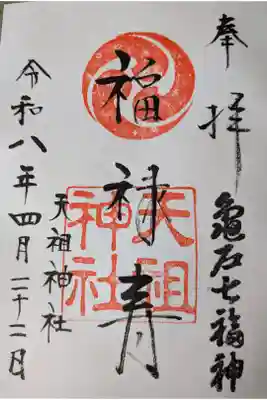 奉拝
龜戸七福神
福禄寿
天祖
神社
天祖神社
令和八年四月二十二日